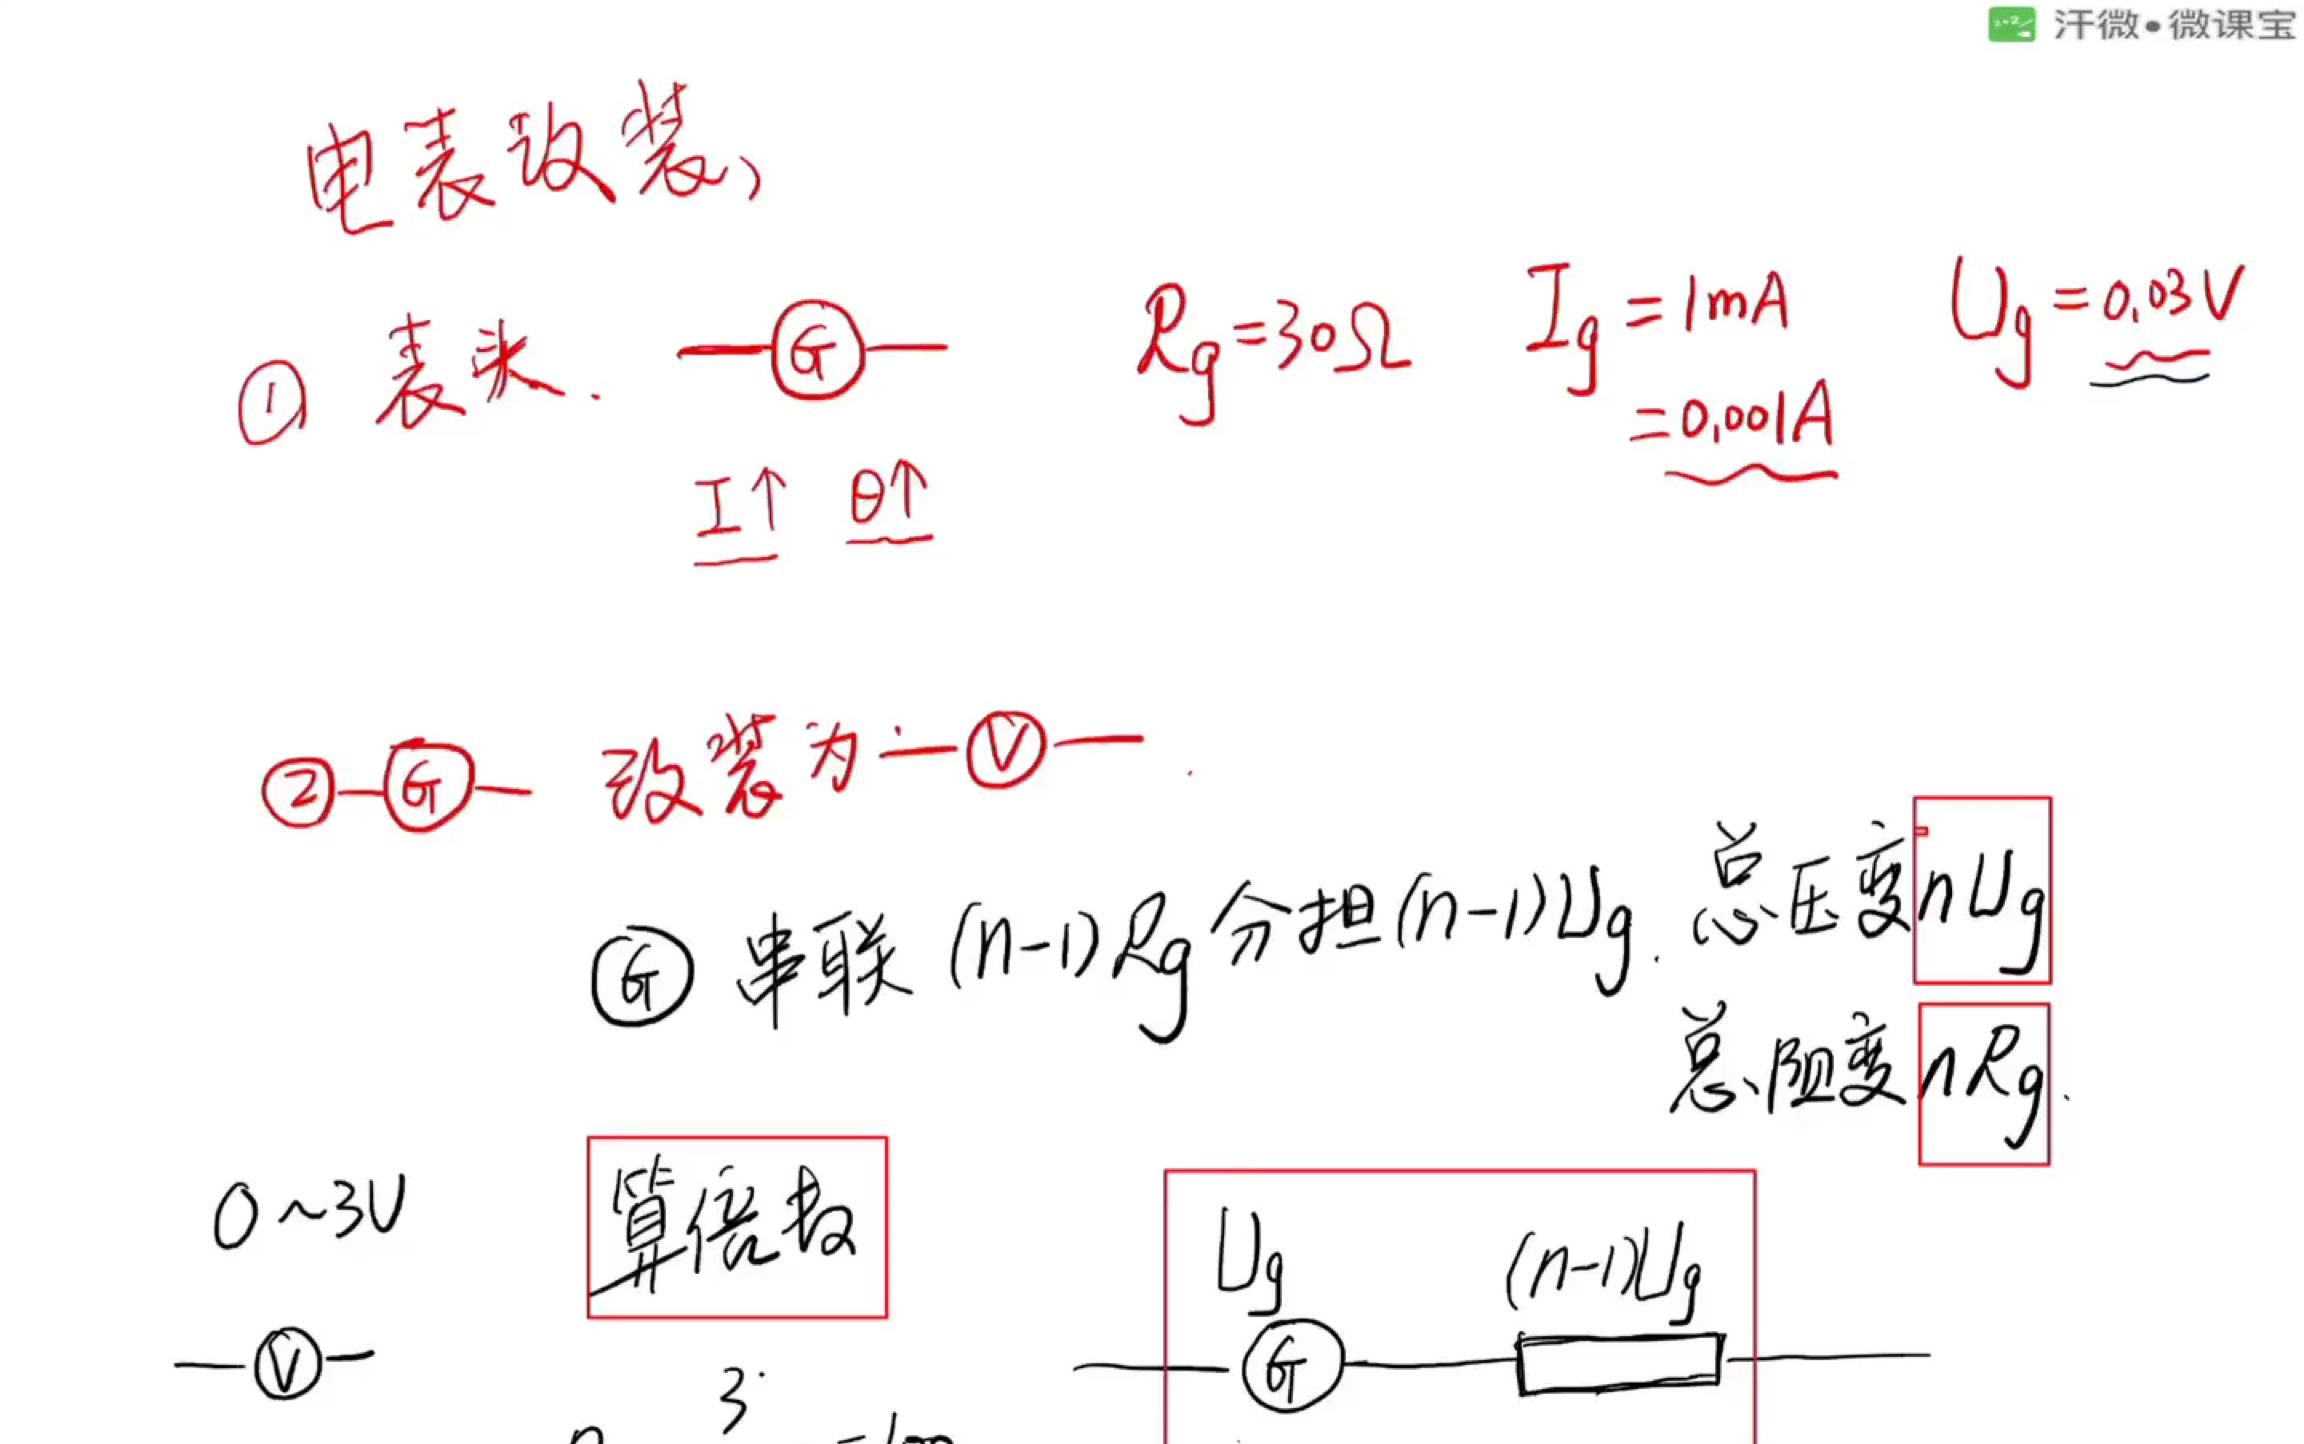 汗微•微课宝
电表改装、
① 表头. G Rg=30Ω Ig=1mA Ug=0.03V
=0.001A
I↑ θ↑
② G 改装为 V
G 串联 (n-1)Rg 分担 (n-1)Ug. 总压变 nUg
总阻变 nRg.
0~3V 算倍数 Ug (n-1)Ug
V G
3